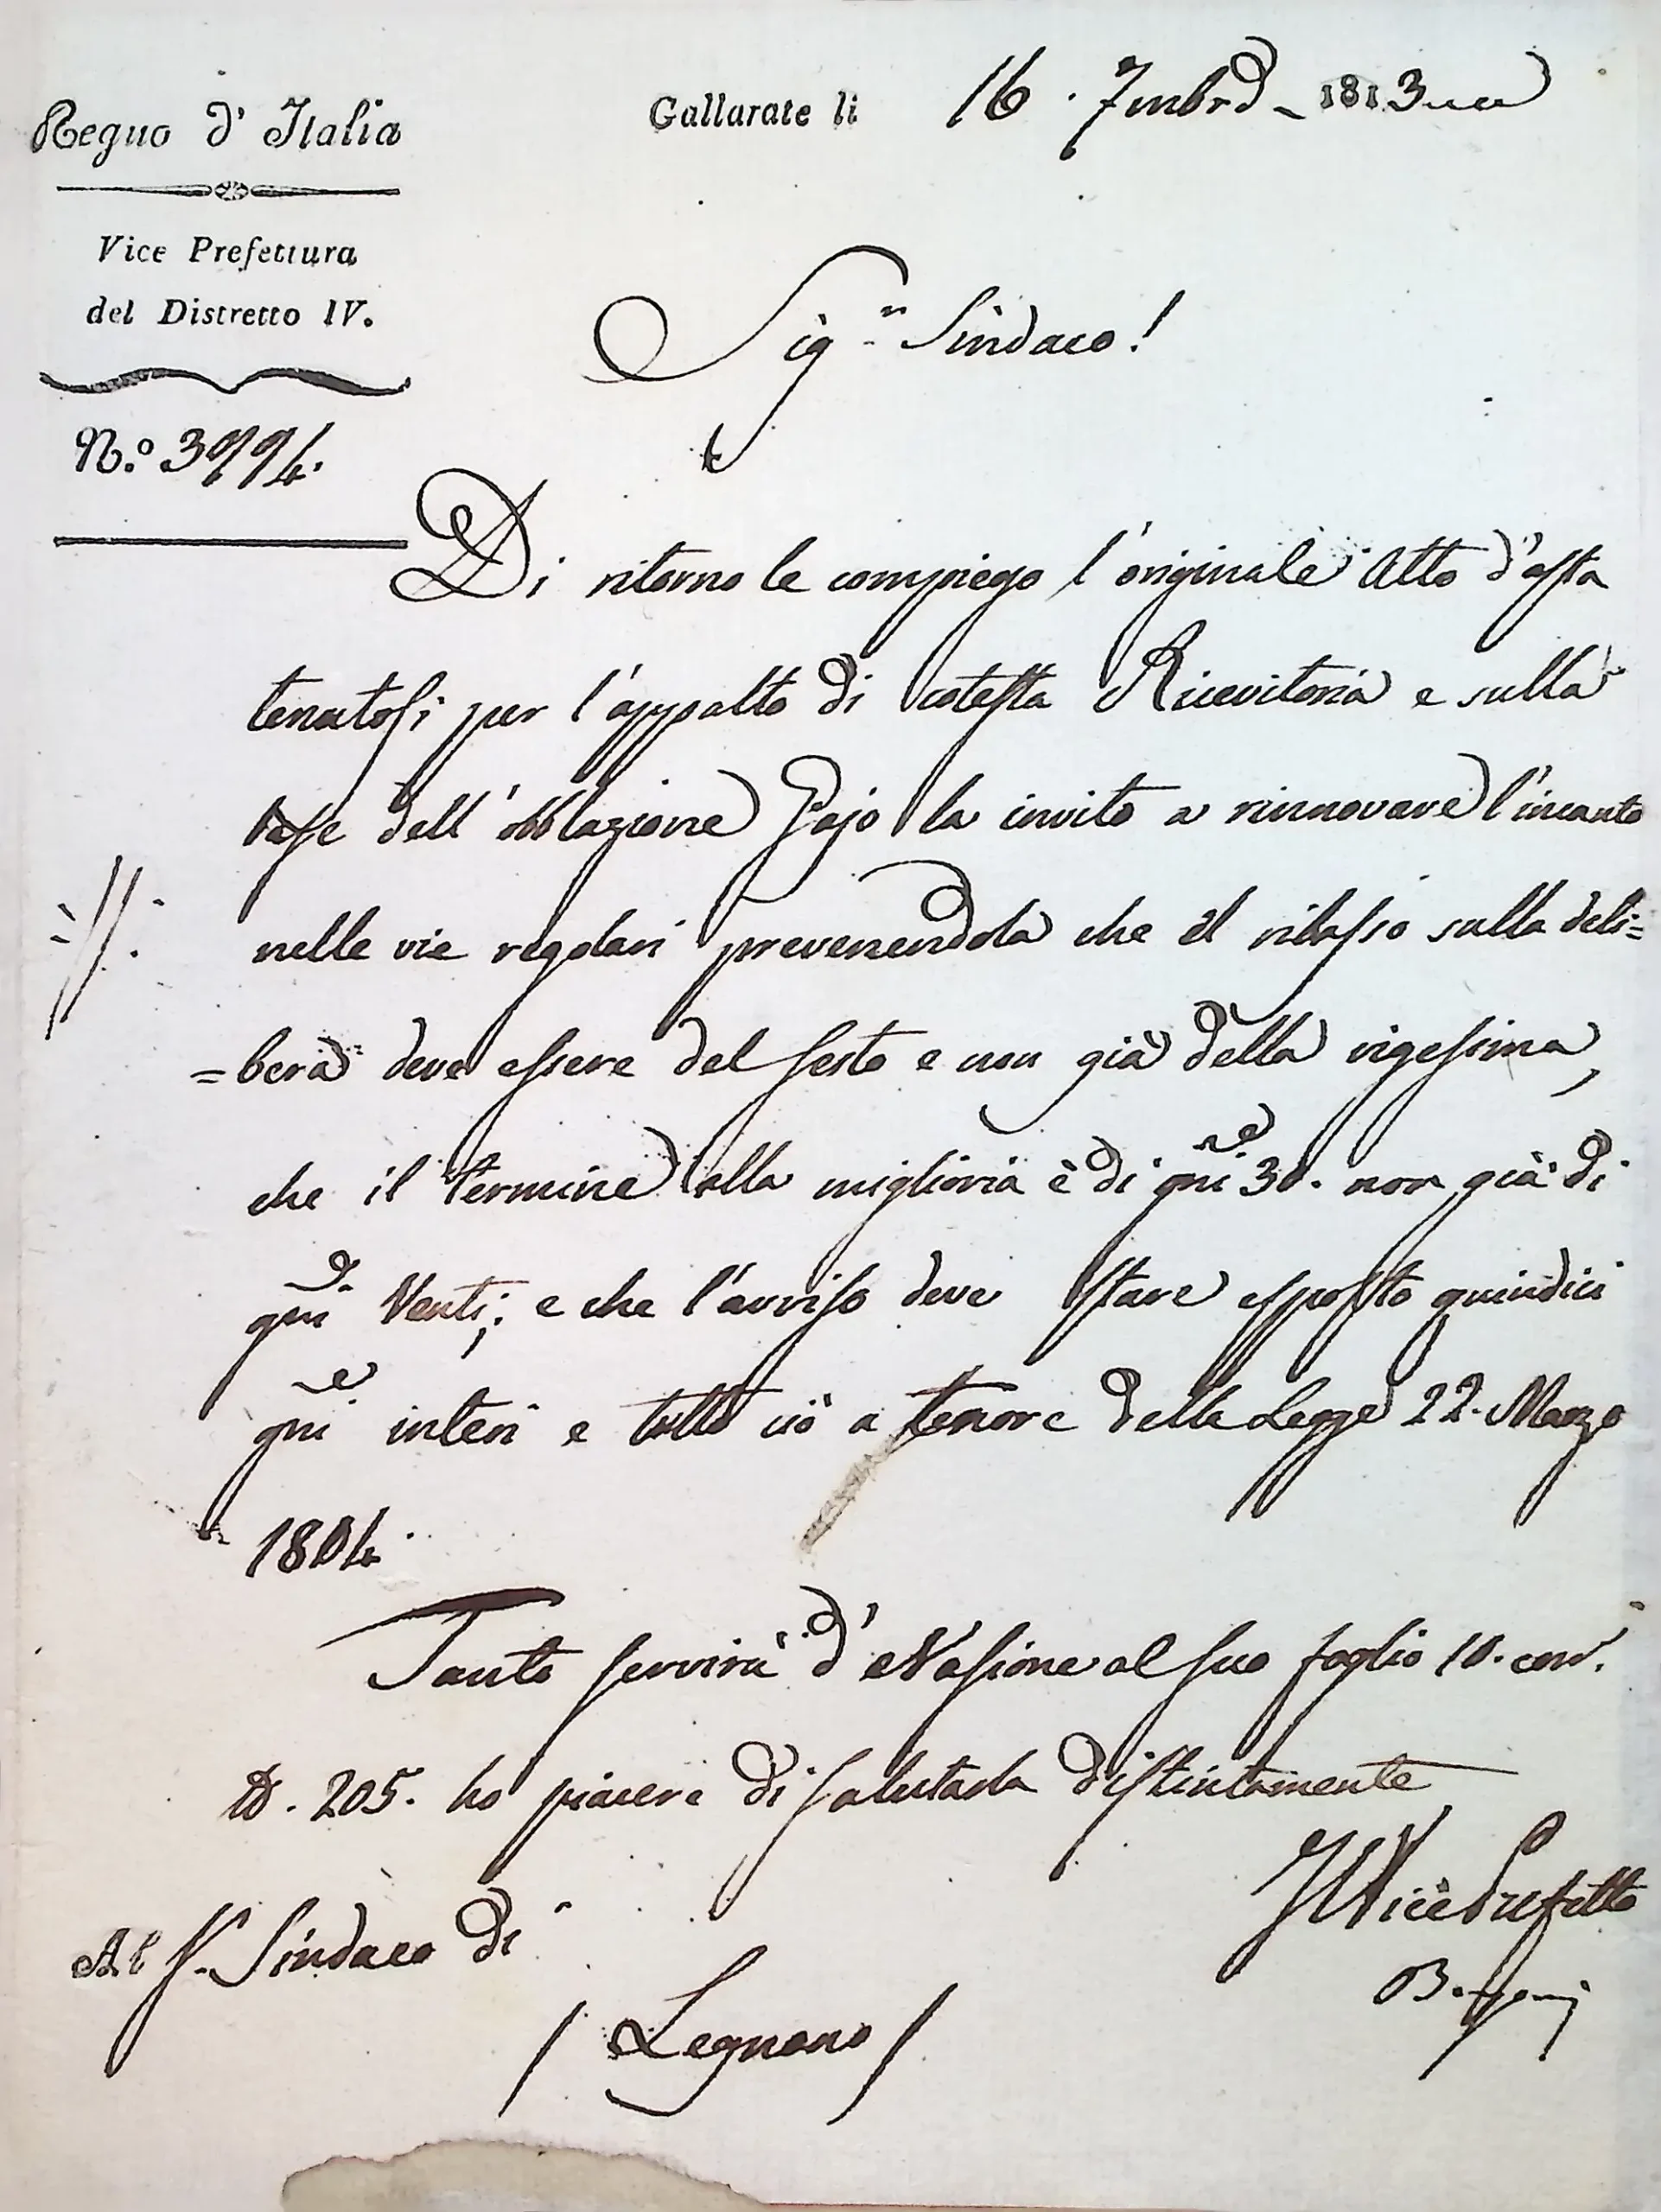 Regno d' Italia
Gallarate li 16. 7mbre 1813
Vice Prefettura
del Distretto IV.
N.º 3994.
Sig.r Sindaco!
Di ritorno le compiego l'originale Atto d'asta
tenutosi per l'appalto di cotesta Ricevitoria e sulla
base dell'obblazione Gajo la invito a rinnovare l'incanto
nelle vie regolari prevenendola che il rilasso sulla deli=
=bera deve essere del sesto e non già della vigesima,
che il termine alla miglioria è di gni 30. non già di
gni Venti; e che l'avviso deve stare esposto quindici
gni interi e tutto ciò a tenore della Legge 22. Marzo
1804.
Tanto servirà d'evasione al suo foglio 10. corr.
N. 205. ho piacere di salutarla distintamente
Il Vice Prefetto
Al S.r Sindaco di
Legnano